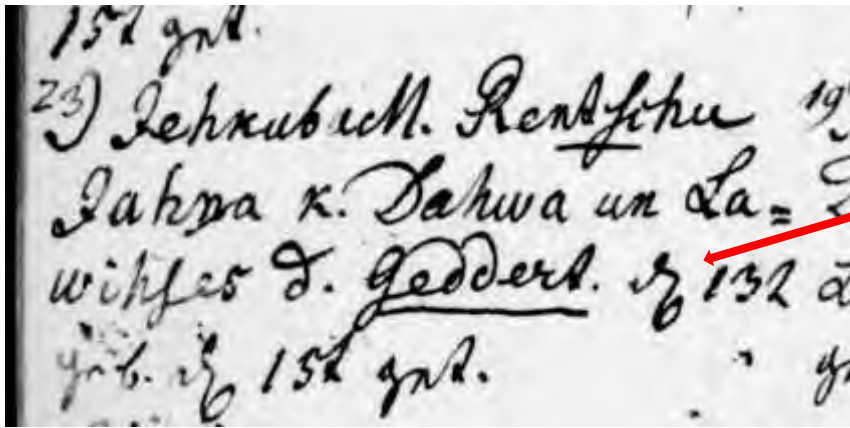 15t get.
23) Jehkub u M. Rentschu 19
Jahna k. Dahwa un La=
wihses d. Geddert. d. 132
geb. d. 15t get.